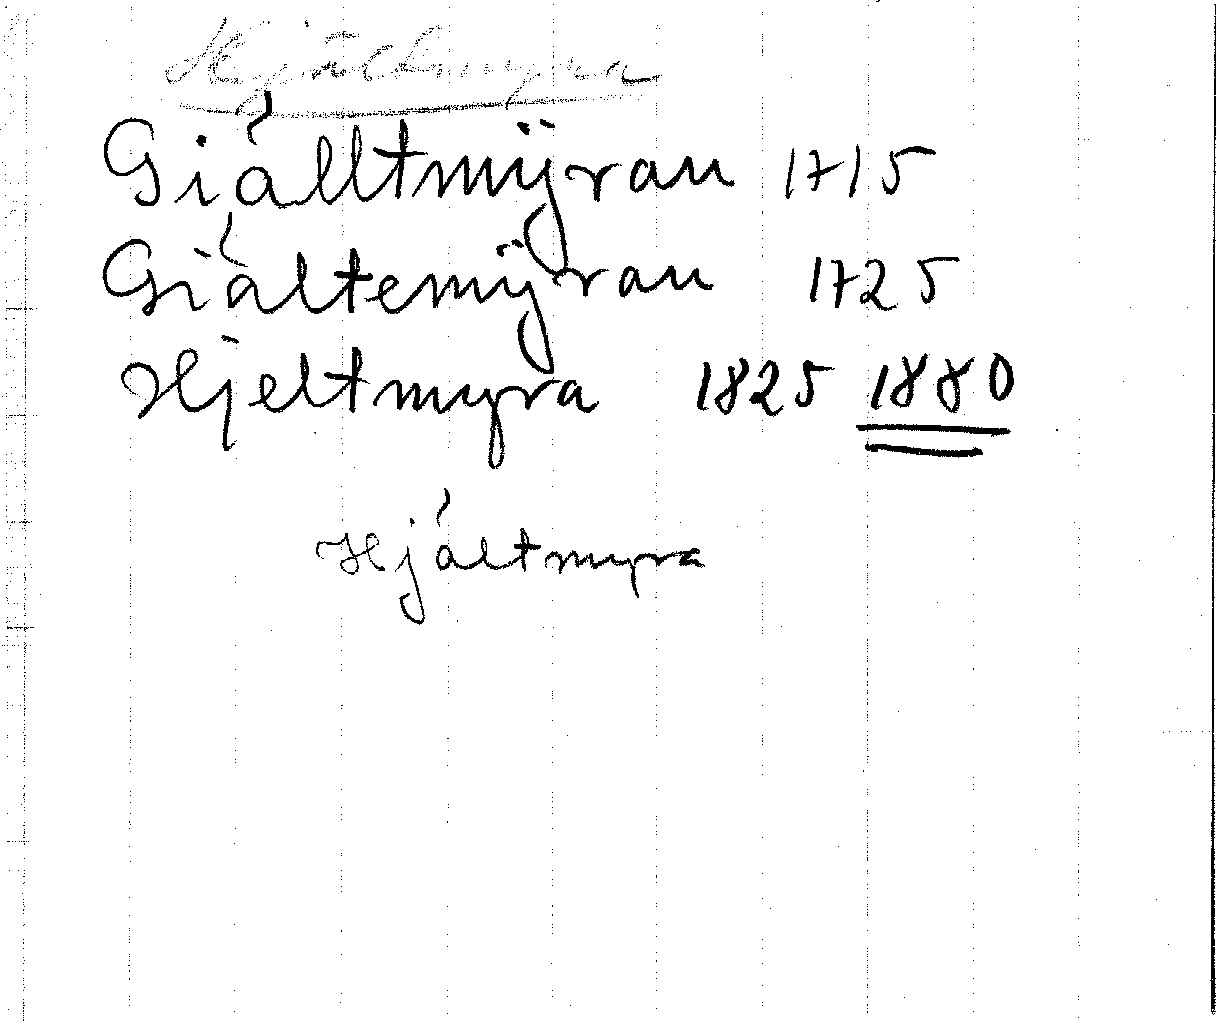 Hjältmyra
Giálltmÿran 1715
Giáltemÿran 1725
Hjeltmyra 1825 1880
Hjáltmyra